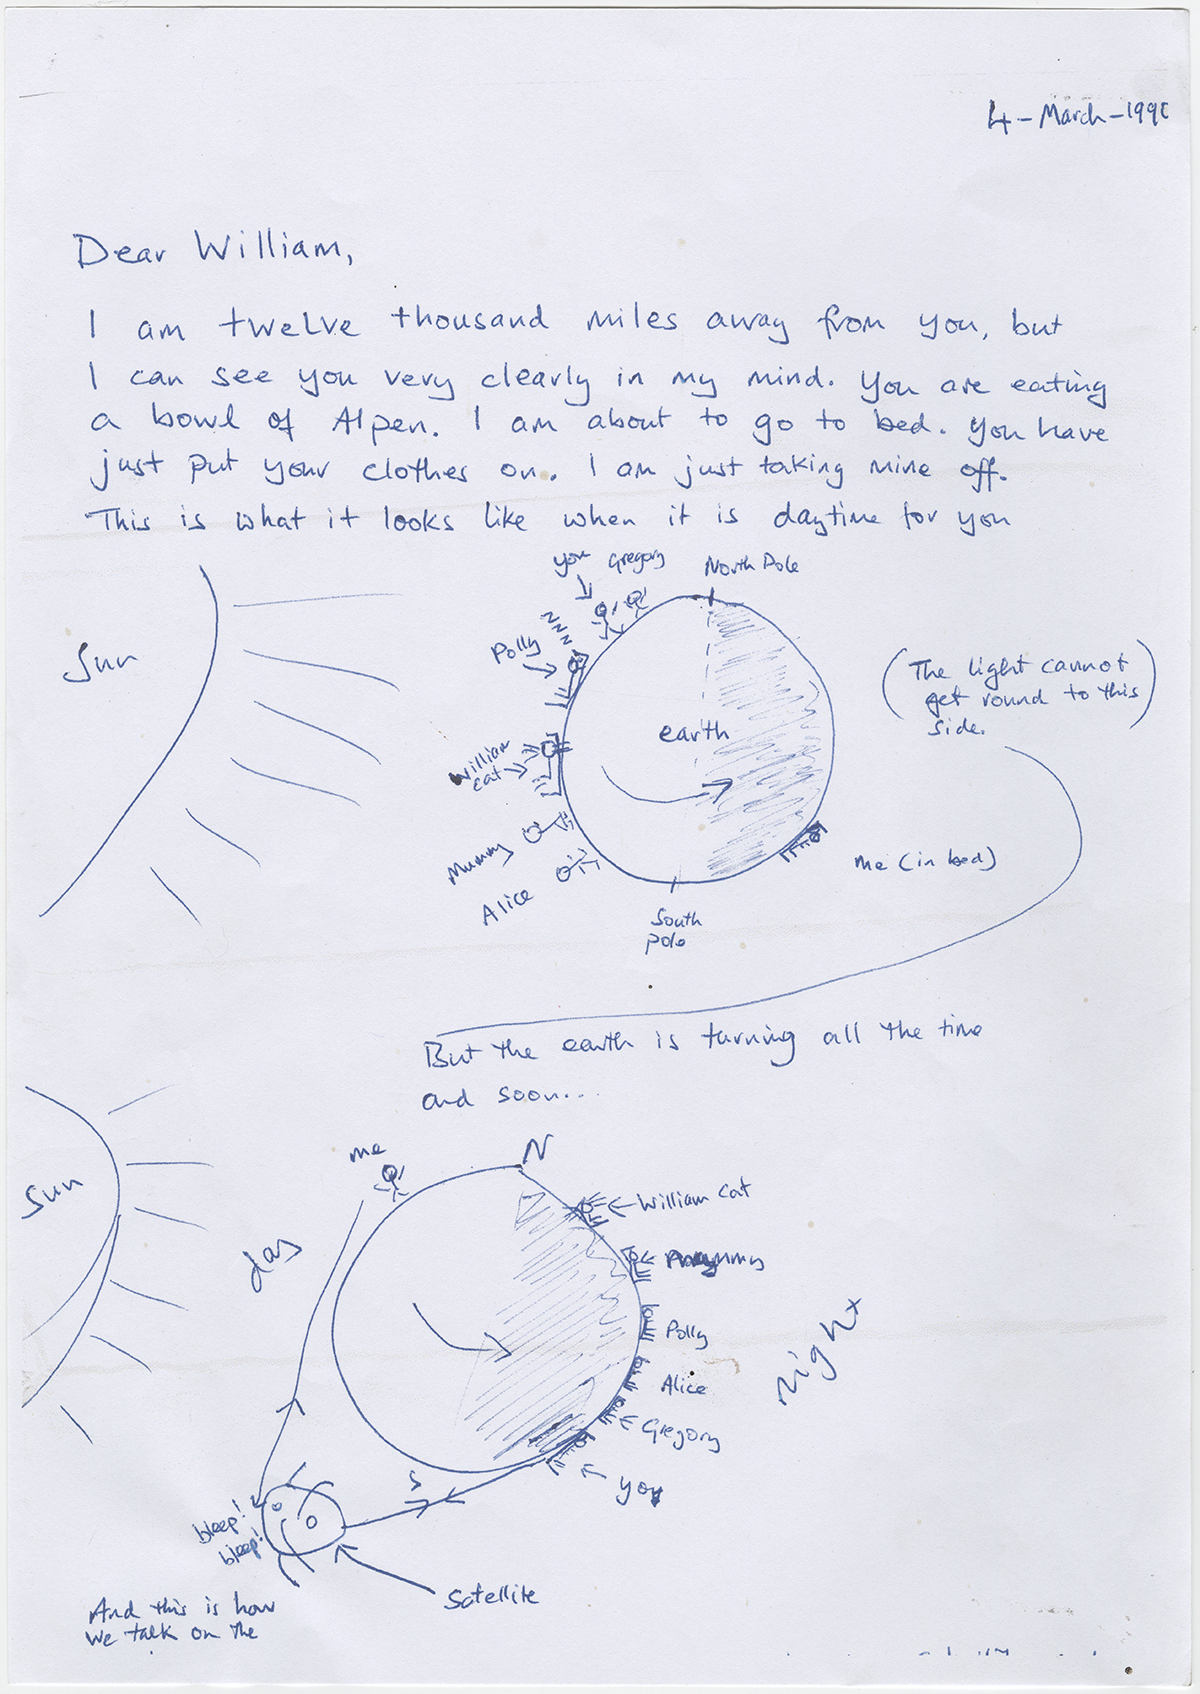 4-March-199
Dear William,
I am twelve thousand miles away from you, but
I can see you very clearly in my mind. You are eating
a bowl of Alpen. I am about to go to bed. You have
just put your clothes on. I am just taking mine off.
This is what it looks like when it is daytime for you
you Gregory
North Pole
zzz
Polly
Sun
(The light cannot
get round to this
side.)
earth
William
cat
Mummy
Me (in bed)
Alice
South
pole
But the earth is turning all the time
and soon...
me
N
Sun
William Cat
day
Mummy
Polly
night
Alice
Gregory
S
you
bleep!
bleep!
Satellite
And this is how
we talk on the